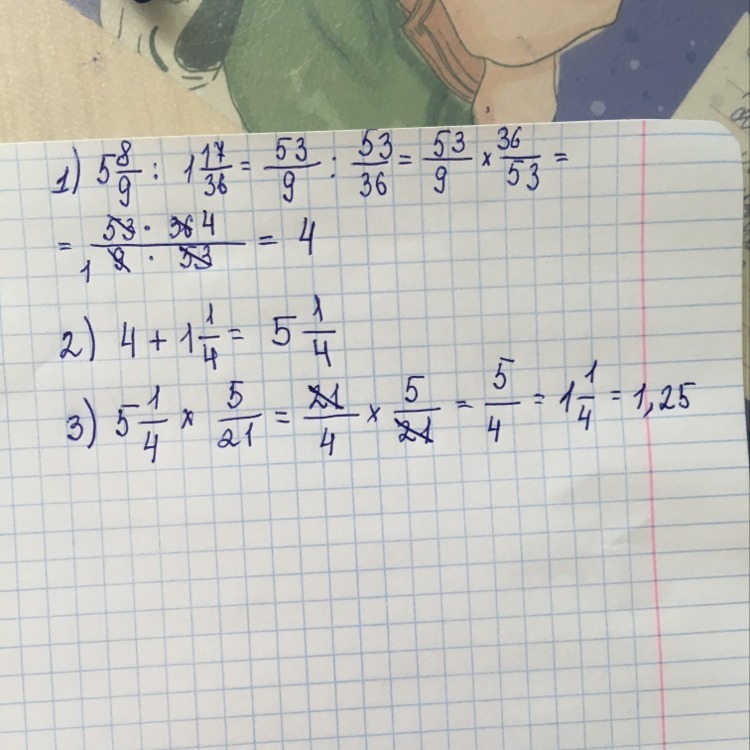 1) 5 8/9 : 1 17/36 = 53/9 : 53/36 = 53/9 × 36/53 =
= (53 · 36 4)/(1 9 · 53) = 4
2) 4 + 1 1/4 = 5 1/4
3) 5 1/4 × 5/21 = 21/4 × 5/21 = 5/4 = 1 1/4 = 1,25